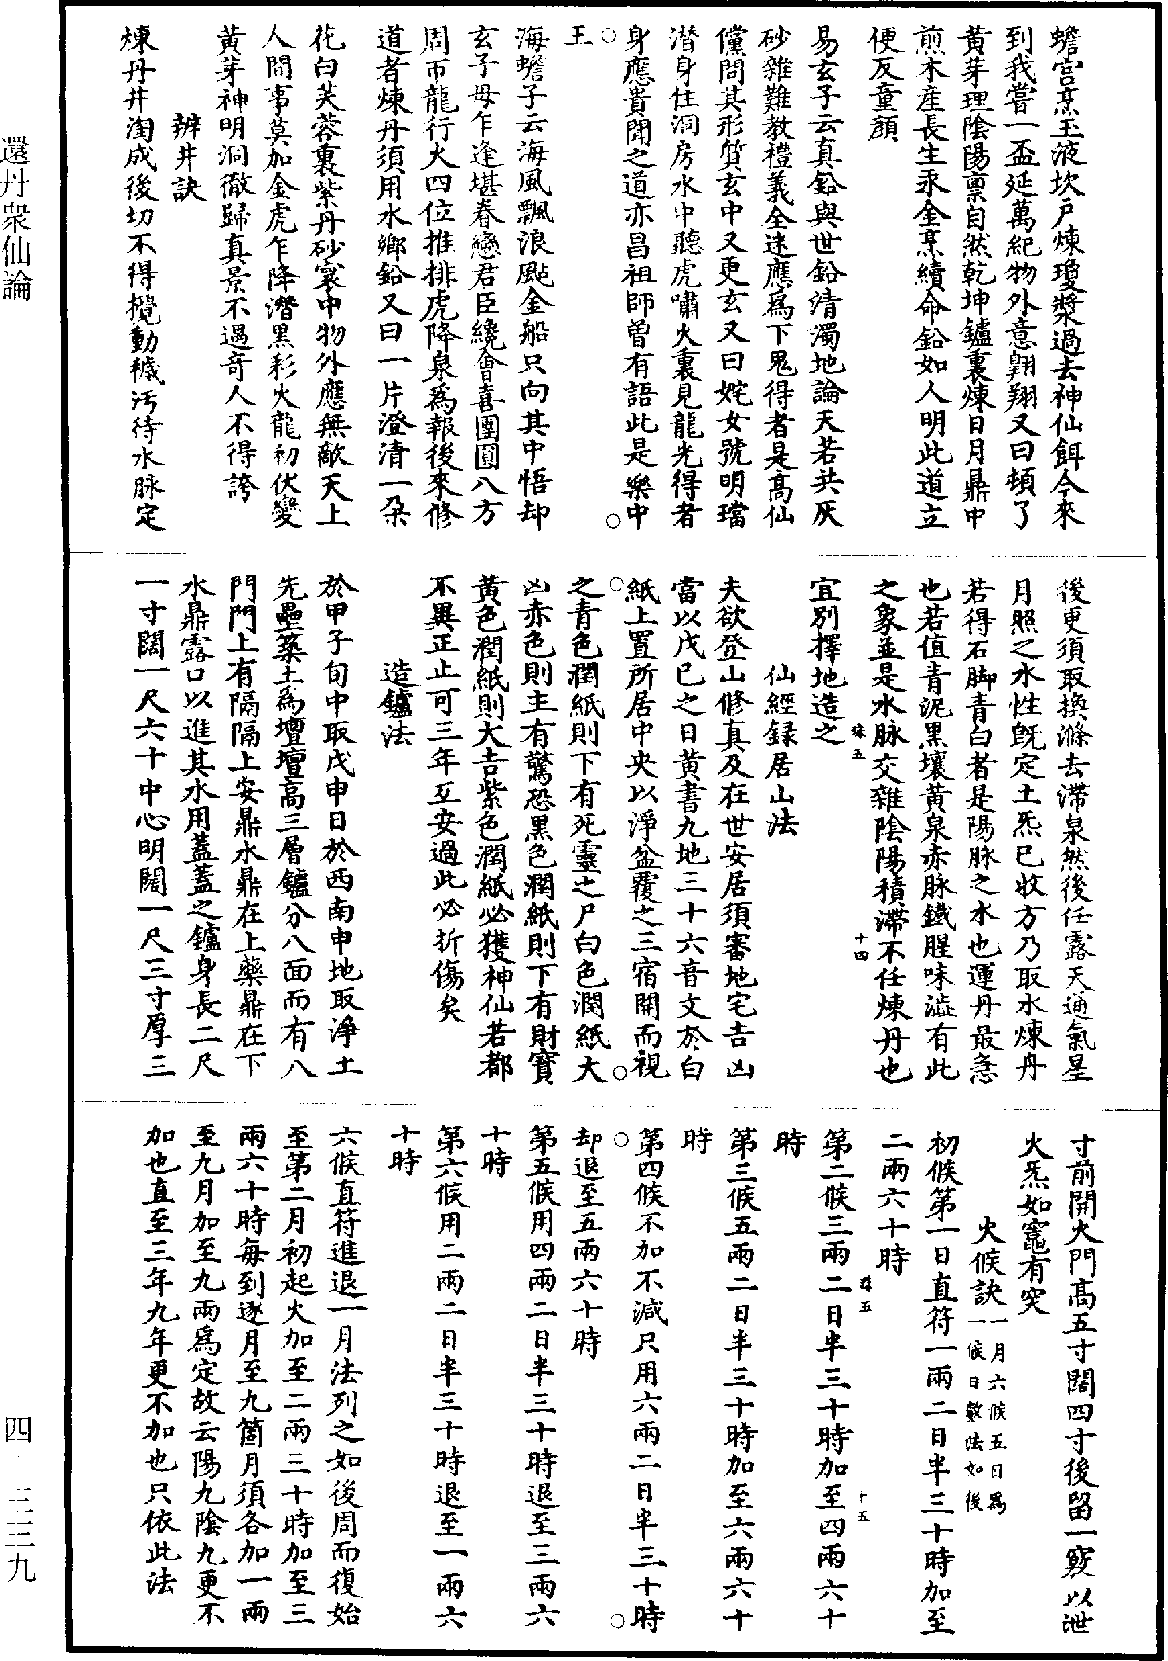 蟾宫烹玉液坎户煉瓊漿過去神仙餌今來
到我嘗一盃延萬紀物外意翱翔又曰頓了
黄芽理陰陽禀自然乾坤鑪裏煉日月鼎中
煎木産長生汞金烹續命鉛如人明此道立
便反童顔
易玄子云真鉛與世鉛清濁地論天若共灰
砂雜難教禮義全迷應爲下鬼得者是高仙
儻問其形質玄中又更玄又曰姹女號明璫
潛身住洞房水中聽虎嘯火裏見龍光得者
身應貴聞之道亦昌祖師曾有語此是藥中
王
海蟾子云海風飄浪颭金船只向其中悟却
玄子母乍逢堪眷戀君臣繞會喜團圓八方
周帀龍行火四位推排虎降泉爲報後來修
道者煉丹須用水鄉鉛又曰一片澄清一朵
花白芙蓉裏紫丹砂寰中物外應無敵天上
人間事莫加金虎乍降潛黑彩火龍初伏變
黄芽神明洞徹歸真景不遇奇人不得誇
辨井訣
煉丹井淘成後切不得攪動穢污待水脉定
後更須取換滌去滯泉然後任露天通氣星
月照之水性既定土炁已收方乃取水煉丹
若得石脚青白者是陽脉之水也運丹最急
也若值青泥黑壤黄泉赤脉鐵腥味澁有此
之象並是水脉交雜陰陽積滯不任煉丹也
宜别擇地造之
仙經録居山法
夫欲登山修真及在世安居須審地宅吉凶
當以戊巳之日黄書九地三十六音文於白
紙上置所居中央以淨盆覆之三宿開而視
之青色潤紙則下有死靈之尸白色潤紙大
凶赤色則主有驚恐黑色潤紙則下有財寳
黄色潤紙則大吉紫色潤紙必獲神仙若都
不異正止可三年互安過此必折傷矣
造鑪法
於甲子旬中取戊申日於西南申地取淨土
先壘築土爲壇壇高三層鑪分八面而有八
門門上有隔隔上安鼎水鼎在上藥鼎在下
水鼎露口以進其水用蓋蓋之鑪身長二尺
一寸闊一尺六十中心明闊一尺三寸厚三
寸前開火門高五寸闊四寸後留一竅以泄
火炁如竈有突
火候訣一月六候五日爲
一候日數法如後
初候第一日直符一兩二日半三十時加至
二兩六十時
第二候三兩二日半三十時加至四兩六十
時
第三候五兩二日半三十時加至六兩六十
時
第四候不加不減只用六兩二日半三十時
却退至五兩六十時
第五候用四兩二日半三十時退至三兩六
十時
第六候用二兩二日半三十時退至一兩六
十時
六候直符進退一月法列之如後周而復始
至第二月初起火加至二兩三十時加至三
兩六十時每到逐月至九箇月須各加一兩
至九月加至九兩爲定故云陽九陰九更不
加也直至三年九年更不加也只依此法
還丹衆仙論
四·三三九